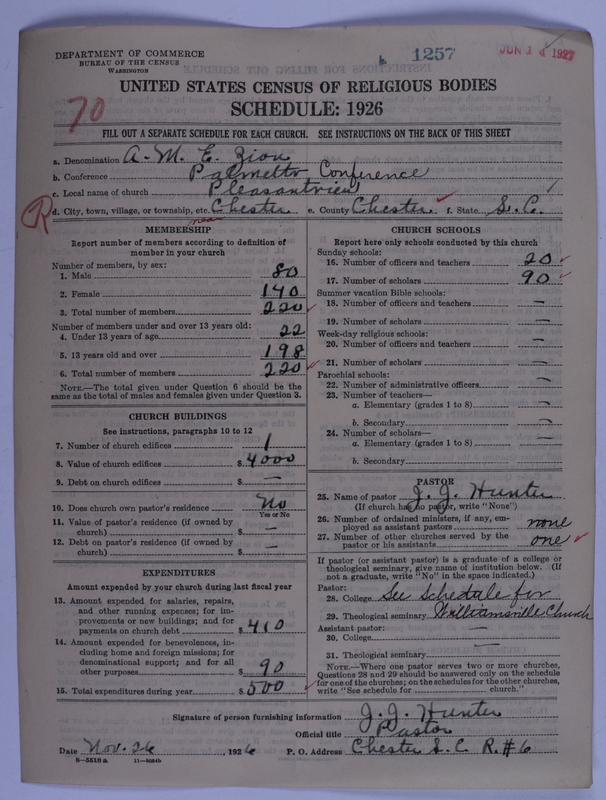 DEPARTMENT OF COMMERCE
BUREAU OF THE CENSUS
WASHINGTON
1257
JUN 1 4 1927
70
UNITED STATES CENSUS OF RELIGIOUS BODIES
SCHEDULE: 1926
FILL OUT A SEPARATE SCHEDULE FOR EACH CHURCH. SEE INSTRUCTIONS ON THE BACK OF THIS SHEET
a. Denomination A. M. E. Zion
b. Conference Palmetto Conference
c. Local name of church Pleasantview
R
d. City, town, village, or township, etc. Chester e. County Chester f. State S. C.
near
MEMBERSHIP
Report number of members according to definition of member in your church
Number of members, by sex:
1. Male 80
2. Female 140
3. Total number of members 220
Number of members under and over 13 years old:
4. Under 13 years of age 22
5. 13 years old and over 198
6. Total number of members 220
NOTE.—The total given under Question 6 should be the
same as the total of males and females given under Question 3.
CHURCH BUILDINGS
See instructions, paragraphs 10 to 12
7. Number of church edifices 1
8. Value of church edifices $ 4000
9. Debt on church edifices $ —
10. Does church own pastor's residence No
Yes or No
11. Value of pastor's residence (if owned by
church) $ —
12. Debt on pastor's residence (if owned by
church) $ —
EXPENDITURES
Amount expended by your church during last fiscal year
13. Amount expended for salaries, repairs,
and other running expenses; for im-
provements or new buildings; and for
payments on church debt $ 410
14. Amount expended for benevolences, in-
cluding home and foreign missions; for
denominational support; and for all
other purposes $ 90
15. Total expenditures during year $ 500
CHURCH SCHOOLS
Report here only schools conducted by this church
Sunday schools:
16. Number of officers and teachers 20
17. Number of scholars 90
Summer vacation Bible schools:
18. Number of officers and teachers —
19. Number of scholars —
Week-day religious schools:
20. Number of officers and teachers —
21. Number of scholars —
Parochial schools:
22. Number of administrative officers —
23. Number of teachers—
a. Elementary (grades 1 to 8) —
b. Secondary —
24. Number of scholars—
a. Elementary (grades 1 to 8) —
b. Secondary
PASTOR
25. Name of pastor J. J. Hunter
(If church has no pastor, write "None")
26. Number of ordained ministers, if any, em-
ployed as assistant pastors none
27. Number of other churches served by the
pastor or his assistants one
If pastor (or assistant pastor) is a graduate of a college or
theological seminary, give name of institution below. (If
not a graduate, write "No" in the space indicated.)
Pastor:
28. College See Schedule for
29. Theological seminary Williamsville Church
Assistant pastor: —
30. College —
31. Theological seminary
NOTE.—Where one pastor serves two or more churches,
Questions 28 and 29 should be answered only on the schedule
for one of the churches; on the schedules for the other churches,
write "See schedule for church."
Signature of person furnishing information J. J. Hunter
Official title Pastor
Date Nov. 26, 1926 P. O. Address Chester S. C. R. #6
8—5518 a